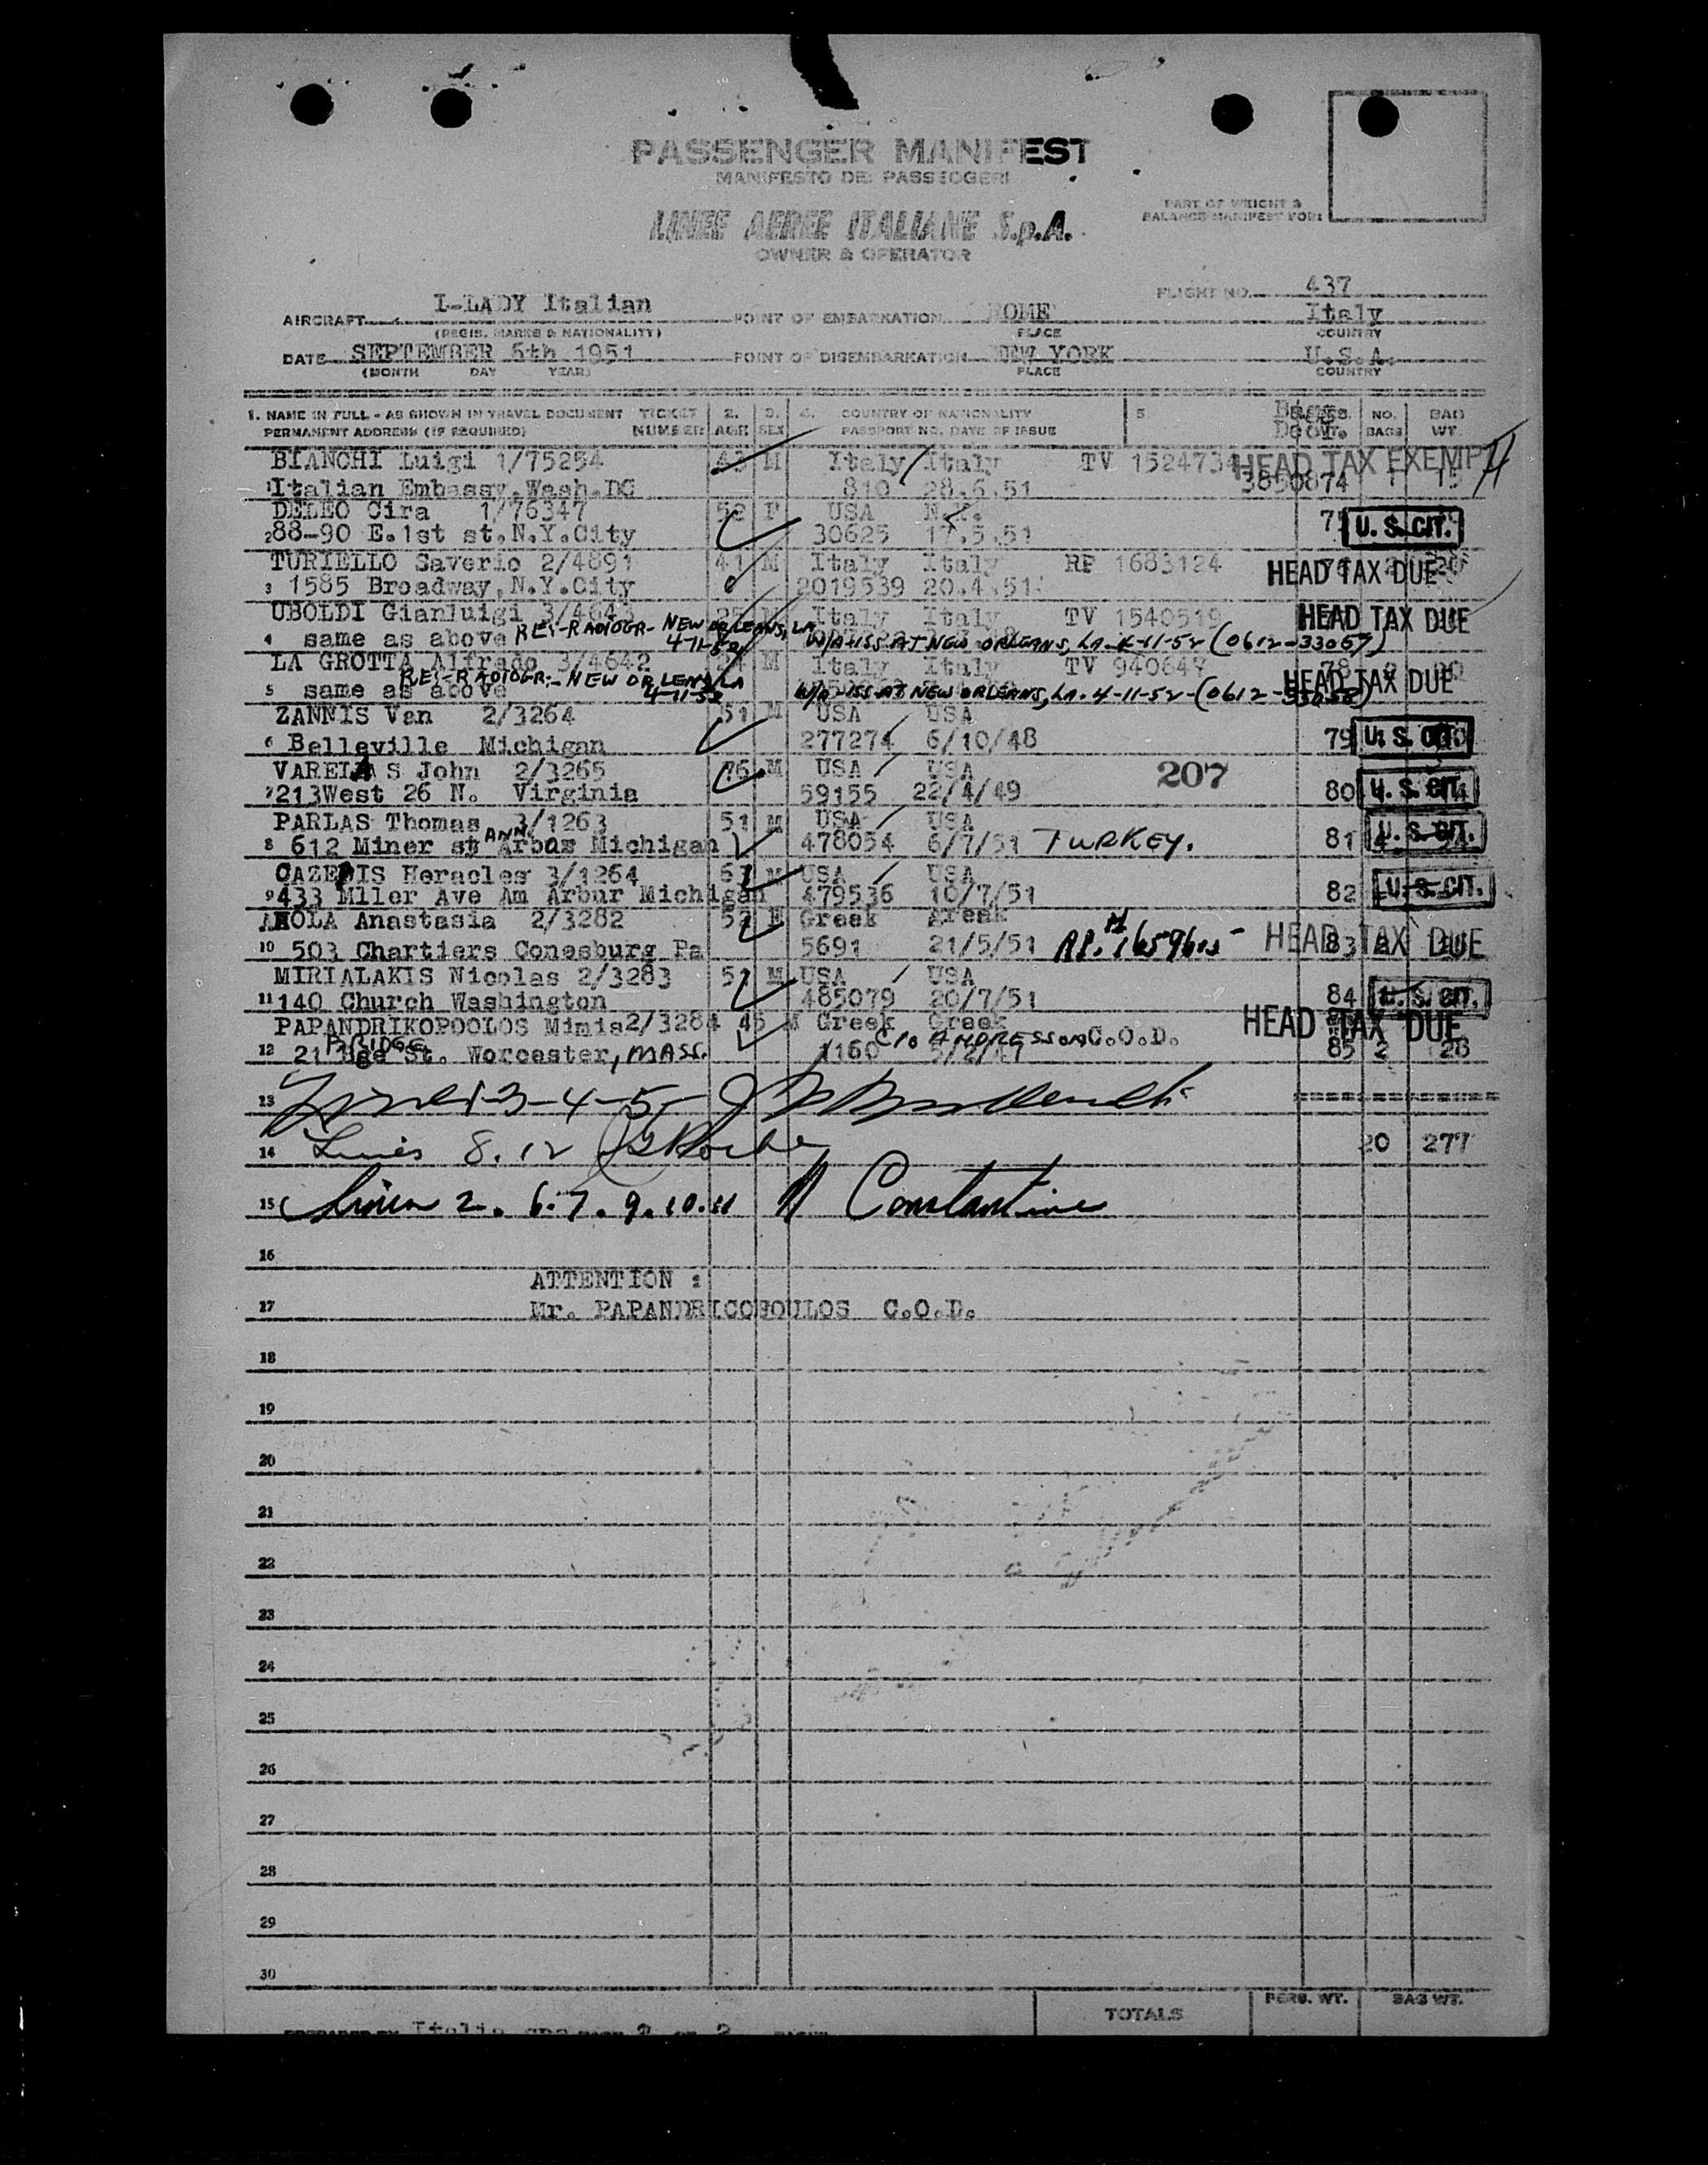 PASSENGER MANIFEST
MANIFESTO DEI PASSEGGERI
PART OF WEIGHT &
BALANCE MANIFEST FOR:
LINEE AEREE ITALIANE S.p.A.
OWNER & OPERATOR
FLIGHT NO. 437
AIRCRAFT I-LADY Italian POINT OF EMBARKATION ROME Italy
(REGIS. MARKS & NATIONALITY) PLACE COUNTRY
DATE SEPTEMBER 6th 1951 POINT OF DISEMBARKATION NEW YORK U.S.A.
(MONTH DAY YEAR) PLACE COUNTRY
1. NAME IN FULL - AS SHOWN IN TRAVEL DOCUMENT TICKET 2. 3. 4. COUNTRY OF NATIONALITY 5. NO. BAG
PERMANENT ADDRESS (IF REQUIRED) NUMBER AGE SEX PASSPORT NO. DATE OF ISSUE BAGS WT.
BIANCHI Luigi 1/75254 43 M Italy Italy TV 1524734 HEAD TAX EXEMPT
1 Italian Embassy,Wash.DC 810 28.6.51 3650874 1 15
DELEO Cira 1/76347 52 F USA N.Y.
2 88-90 E.1st st,N.Y.City 30625 17.5.51 U. S. CIT.
TURIELLO Saverio 2/4891 41 M Italy Italy RP 1683124
3 1585 Broadway,N.Y.City 2019539 20.4.51. HEAD TAX DUE
UBOLDI Gianluigi 3/4643 25 M Italy Italy TV 1540519 HEAD TAX DUE
4 same as above RE:-RADIOGR- NEW ORLEANS, LA 4-11-52 W/A-ISS AT NEW ORLEANS, LA. 4-11-52 (0612-33057)
LA GROTTA Alfredo 3/4642 24 M Italy Italy TV 940647 78 HEAD TAX DUE
5 same as above RE:-RADIOGR.- NEW ORLEANS, LA 4-11-52 W/A-ISS AT NEW ORLEANS, LA. 4-11-52-(0612-33058)
ZANNIS Van 2/3264 51 M USA USA
6 Belleville Michigan 277274 6/10/48 79 U. S. CIT.
VARELAS John 2/3265 76 M USA USA 207
7 213West 26 N. Virginia 59155 22/4/49 80 U. S. CIT.
PARLAS Thomas 3/1263 51 M USA USA
8 612 Miner st ANN Arbor Michigan 478054 6/7/51 TURKEY. 81 U. S. CIT.
CAZEPIS Heracles 3/1264 61 M USA USA
9 433 Mller Ave Am Arbur Michigan 479536 10/7/51 82 U. S. CIT.
AHOLA Anastasia 2/3282 52 F Greek Areak
10 503 Chartiers Conesburg Pa 5691 21/5/51 83 HEAD TAX DUE
MIRIALAKIS Nicolas 2/3283 51 M USA USA
11 140 Church Washington 485079 20/7/51 84 U. S. CIT.
PAPANDRIKOPOOLOS Mimis 2/3284 45 M Greek Greek HEAD TAX DUE
12 21 BRIDGE St. Worcester, MASS. 1160 C/O ANDRESSON C.O.D. 85 2 28
13 1-3-4-5
14 Lines 8. 12 20 277
15 Lines 2. 6. 7. 9. 10. 11 Constantine
16
ATTENTION :
17 Mr. PAPANDRICOPOULOS C.O.D.
18
19
20
21
22
23
24
25
26
27
28
29
30
TOTALS PERS. WT. BAG WT.